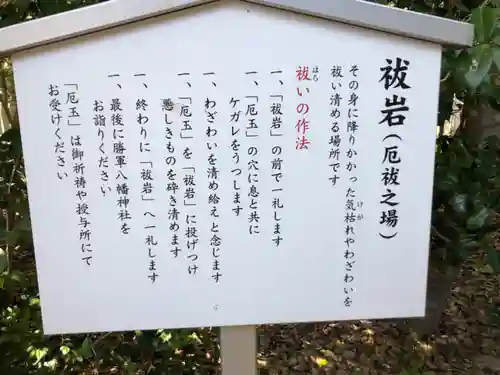 祓岩(厄祓之場)
その身に降りかかった気枯れやわざわいを
けが
祓い清める場所です
祓いの作法
はら
一、「祓岩」の前で一礼します
一、「厄玉」の穴に息と共に
ケガレをうつします
一、わざわいを清め給えと念じます
一、「厄玉」を「祓岩」に投げつけ
悪しきものを砕き清めます
一、終わりに「祓岩」へ一礼します
一、最後に勝軍八幡神社を
お詣りください
「厄玉」は御祈祷や授与所にて
お受けください